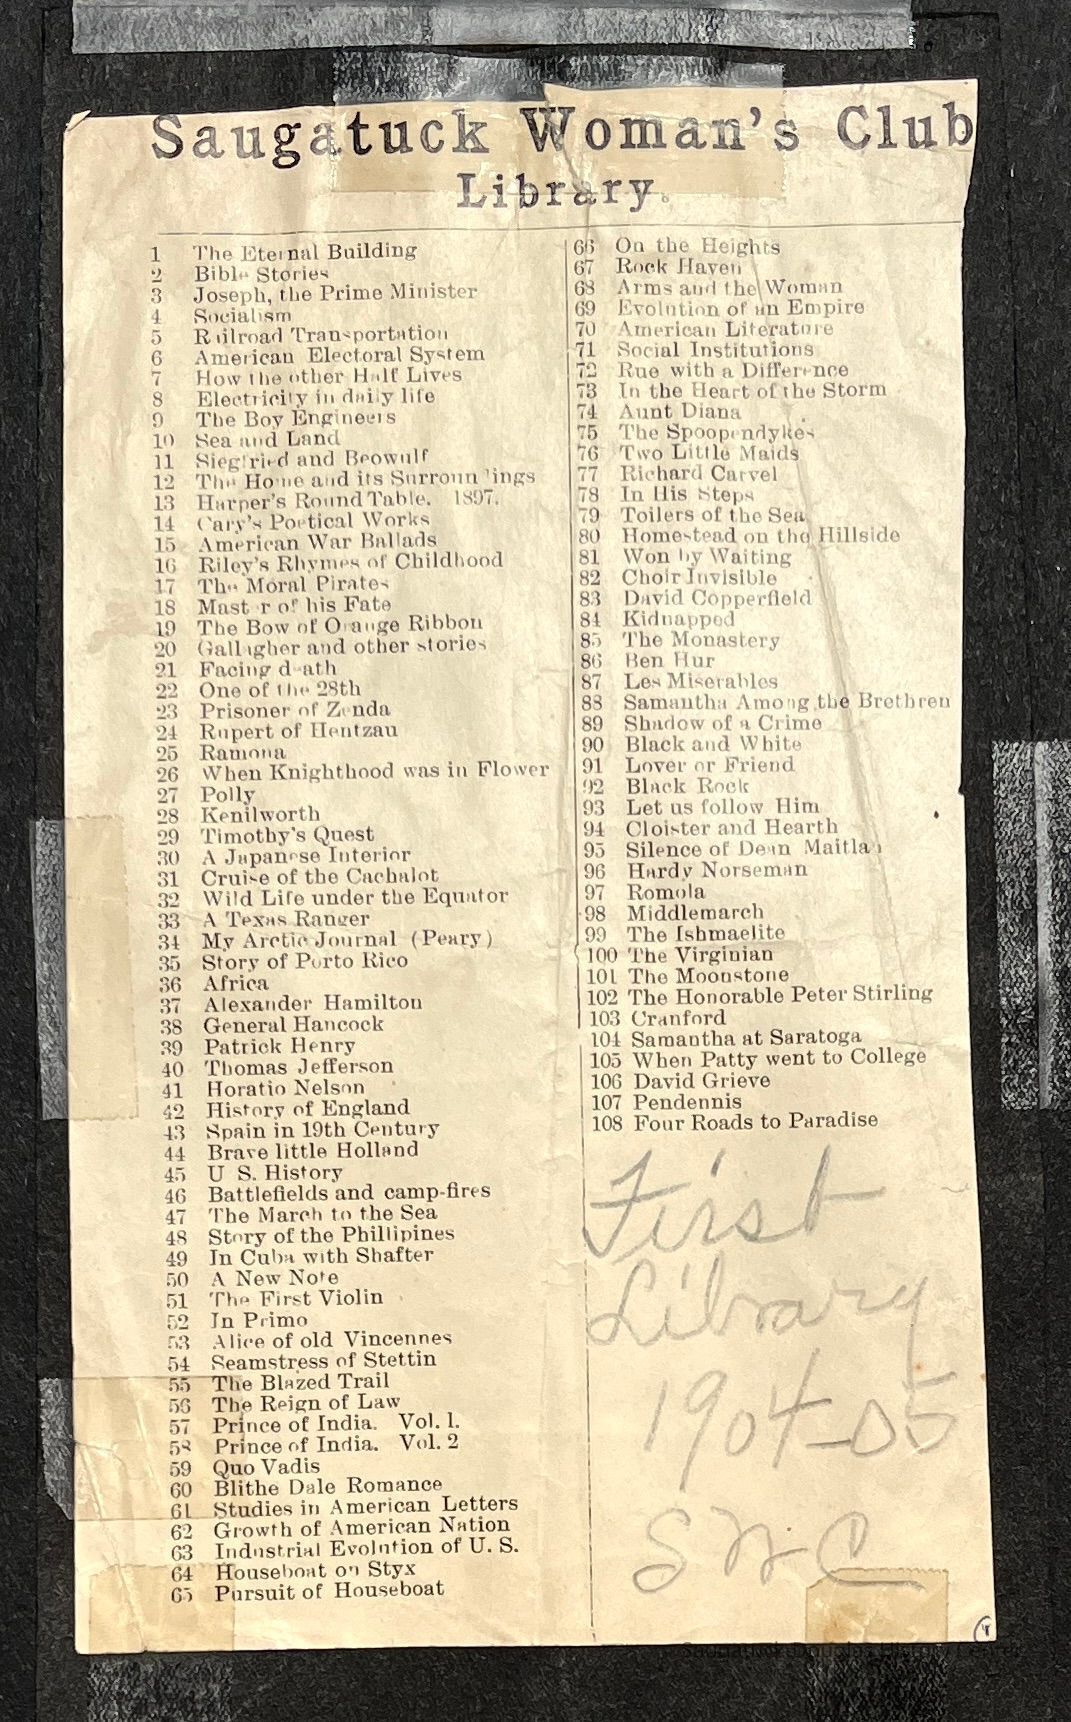 Saugatuck Woman's Club
Library.
1 The Eternal Building
2 Bible Stories
3 Joseph, the Prime Minister
4 Socialism
5 Railroad Transportation
6 American Electoral System
7 How the other Half Lives
8 Electricity in daily life
9 The Boy Engineers
10 Sea and Land
11 Siegfried and Beowulf
12 The Home and its Surroundings
13 Harper's Round Table. 1897.
14 Cary's Poetical Works
15 American War Ballads
16 Riley's Rhymes of Childhood
17 The Moral Pirates
18 Master of his Fate
19 The Bow of Orange Ribbon
20 Gallagher and other stories
21 Facing death
22 One of the 28th
23 Prisoner of Zenda
24 Rupert of Hentzau
25 Ramona
26 When Knighthood was in Flower
27 Polly
28 Kenilworth
29 Timothy's Quest
30 A Japanese Interior
31 Cruise of the Cachalot
32 Wild Life under the Equator
33 A Texas Ranger
34 My Arctic Journal (Peary)
35 Story of Porto Rico
36 Africa
37 Alexander Hamilton
38 General Hancock
39 Patrick Henry
40 Thomas Jefferson
41 Horatio Nelson
42 History of England
43 Spain in 19th Century
44 Brave little Holland
45 U S. History
46 Battlefields and camp-fires
47 The March to the Sea
48 Story of the Phillipines
49 In Cuba with Shafter
50 A New Note
51 The First Violin
52 In Primo
53 Alice of old Vincennes
54 Seamstress of Stettin
55 The Blazed Trail
56 The Reign of Law
57 Prince of India. Vol. 1.
58 Prince of India. Vol. 2
59 Quo Vadis
60 Blithe Dale Romance
61 Studies in American Letters
62 Growth of American Nation
63 Industrial Evolution of U. S.
64 Houseboat on Styx
65 Pursuit of Houseboat
66 On the Heights
67 Rock Haven
68 Arms and the Woman
69 Evolution of an Empire
70 American Literature
71 Social Institutions
72 Rue with a Difference
73 In the Heart of the Storm
74 Aunt Diana
75 The Spoopendykes
76 Two Little Maids
77 Richard Carvel
78 In His Steps
79 Toilers of the Sea
80 Homestead on the Hillside
81 Won by Waiting
82 Choir Invisible
83 David Copperfield
84 Kidnapped
85 The Monastery
86 Ben Hur
87 Les Miserables
88 Samantha Among the Brethren
89 Shadow of a Crime
90 Black and White
91 Lover or Friend
92 Black Rock
93 Let us follow Him
94 Cloister and Hearth
95 Silence of Dean Maitlan
96 Hardy Norseman
97 Romola
98 Middlemarch
99 The Ishmaelite
100 The Virginian
101 The Moonstone
102 The Honorable Peter Stirling
103 Cranford
104 Samantha at Saratoga
105 When Patty went to College
106 David Grieve
107 Pendennis
108 Four Roads to Paradise
First
Library
1904-05
SWC